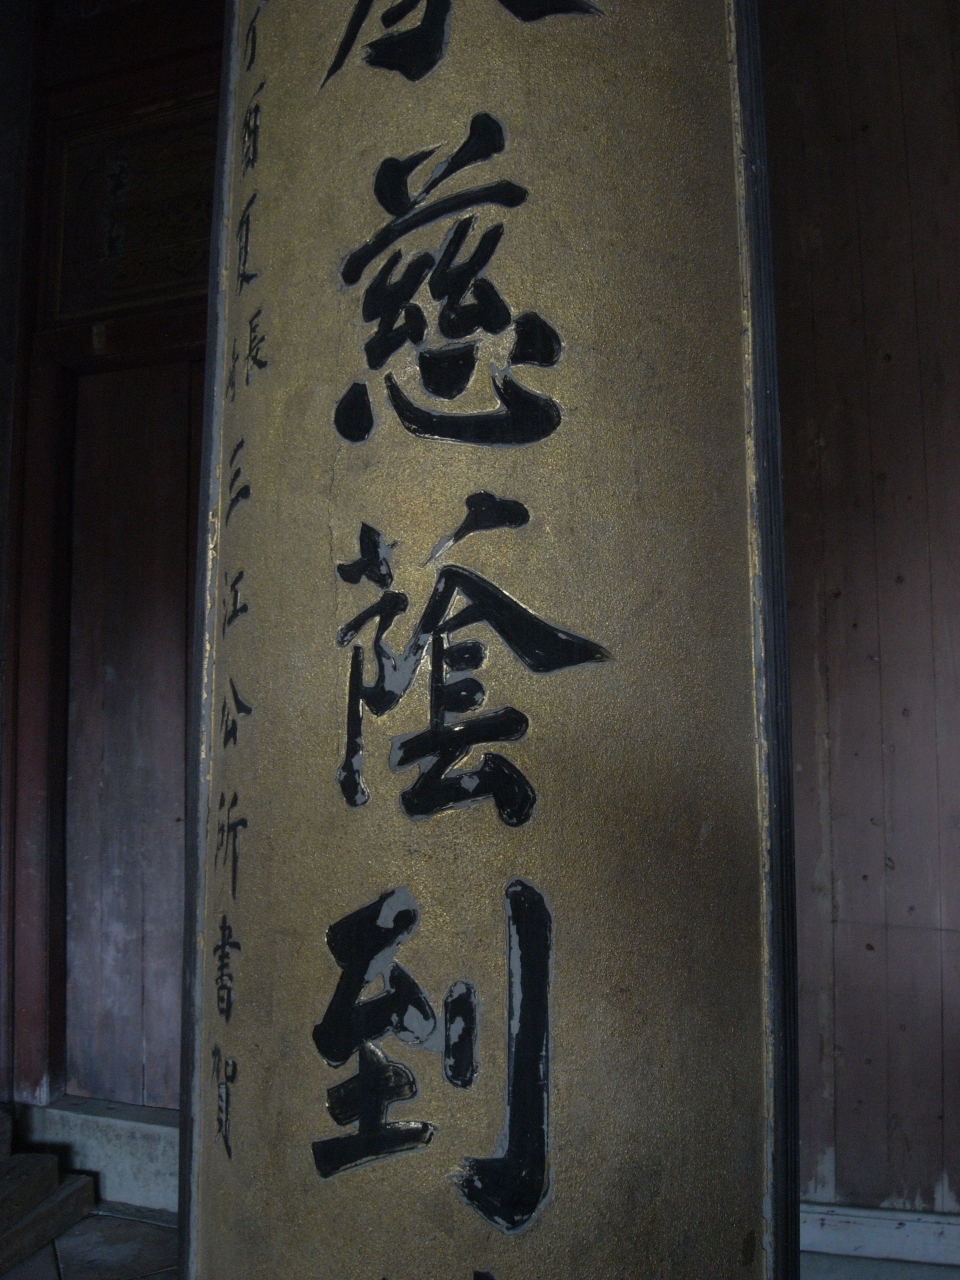 慈蔭到
酉夏
長
三江公所書賀